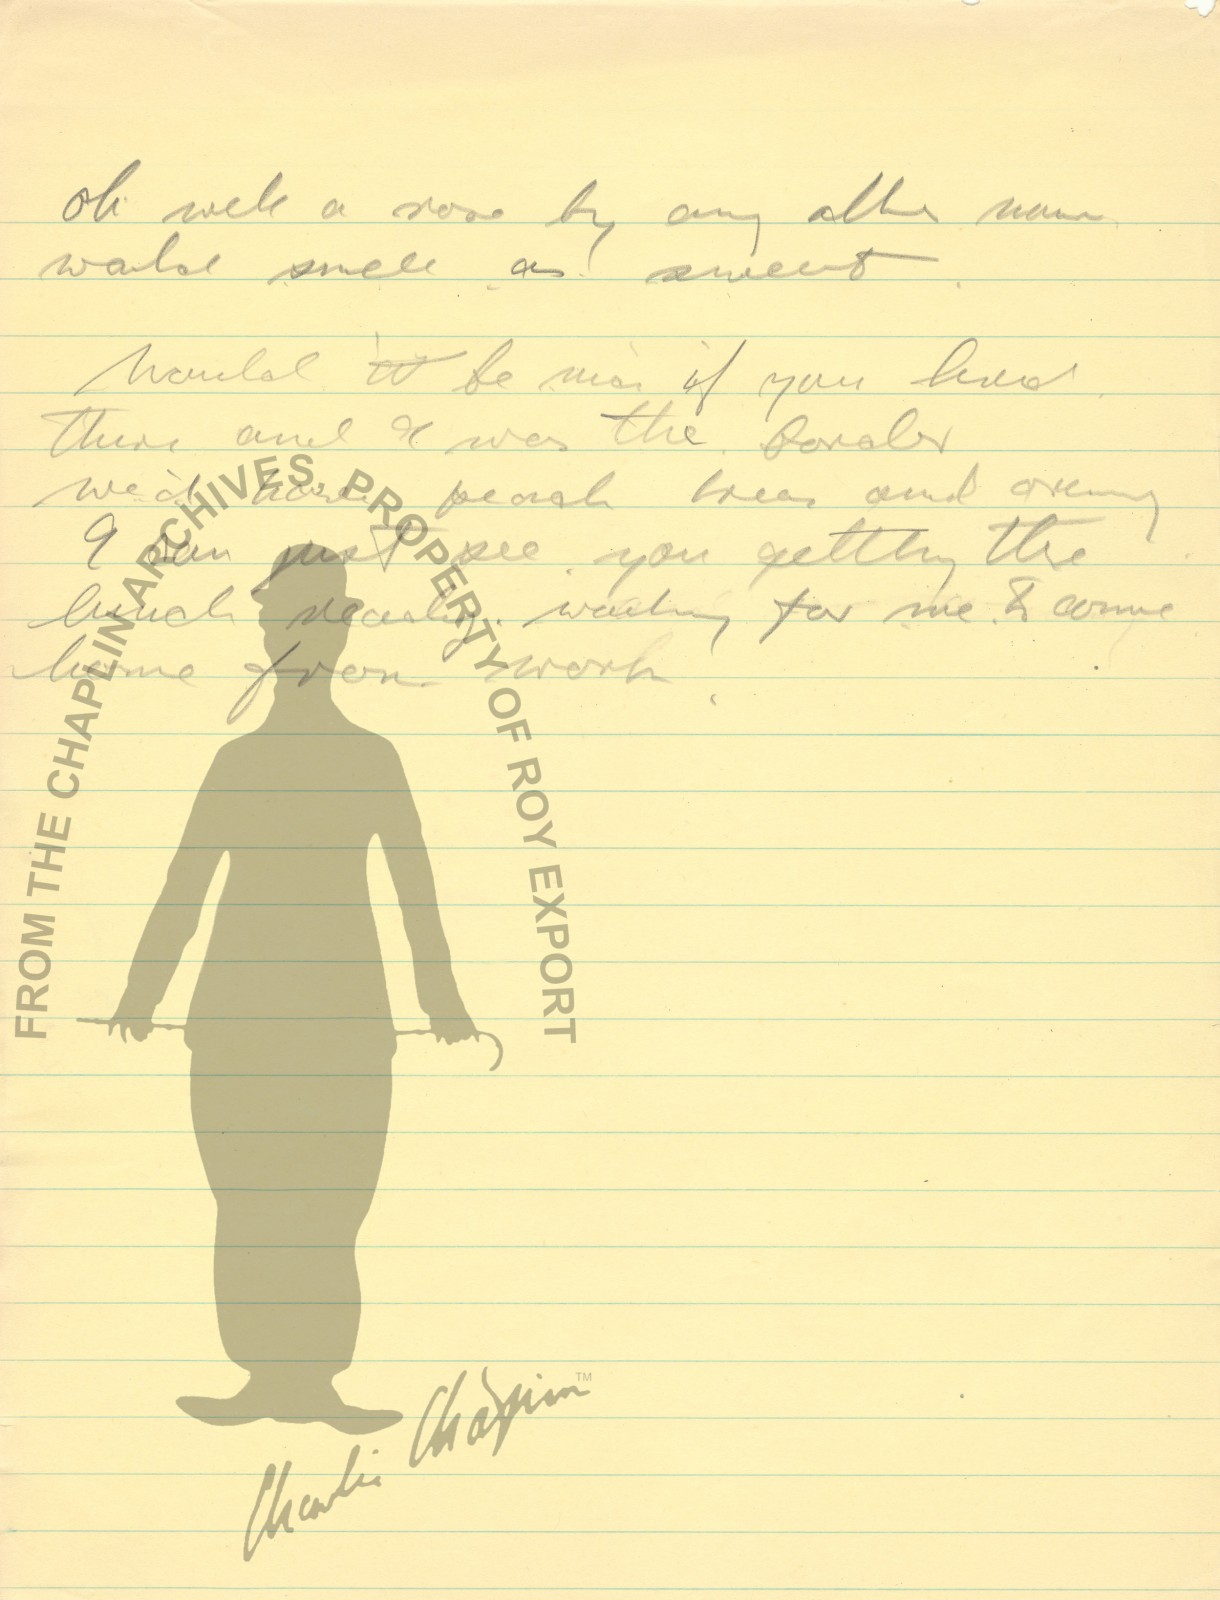 oh well a rose by any other name
would smell as sweet.
Would it be nice if you lived
there and I was the boarder
we'd have peach trees and
I can just see you getting the
lunch ready. waiting for me to come
home from work.
FROM THE CHAPLIN ARCHIVES, PROPERTY OF ROY EXPORT
Charlie Chaplin™